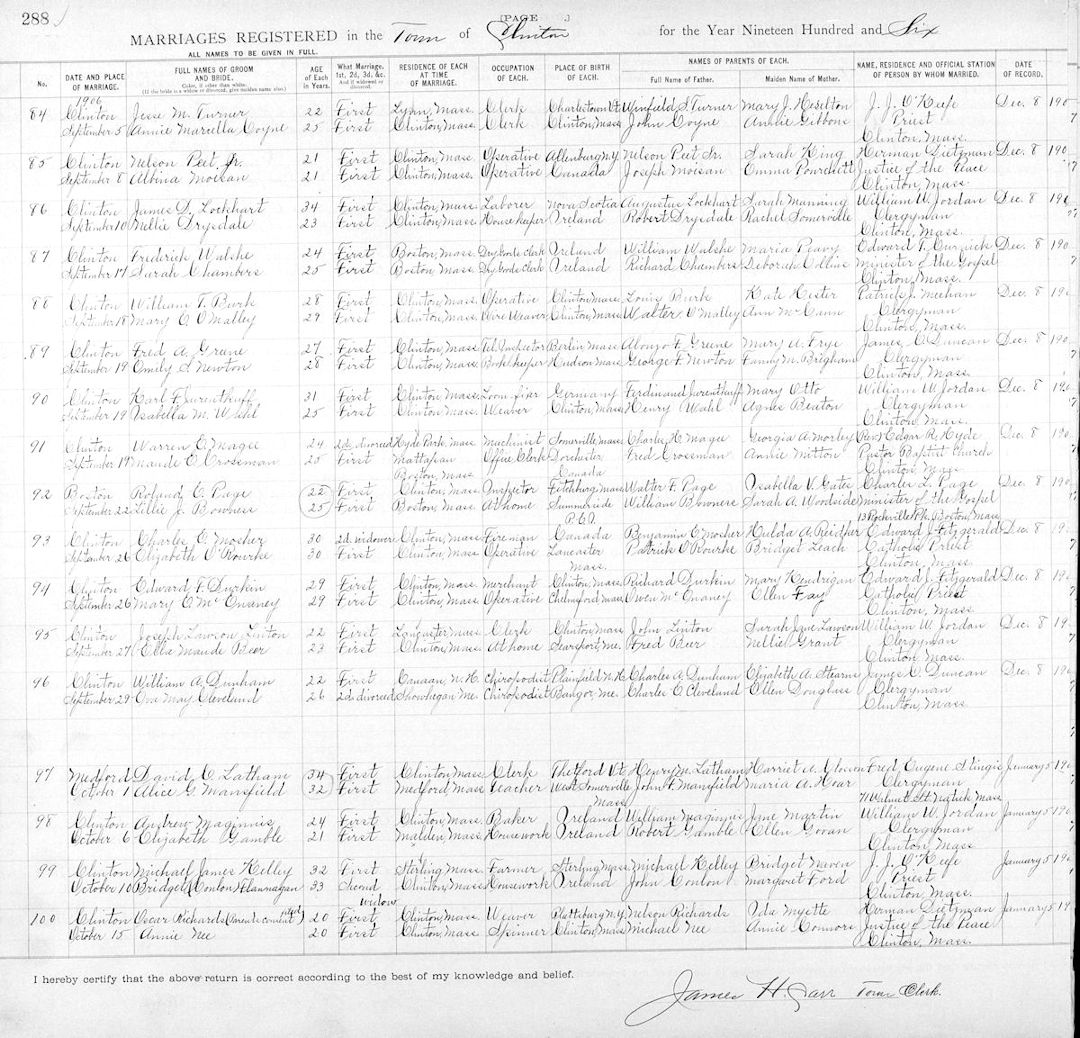 288
[PAGE .]
MARRIAGES REGISTERED in the Town of Clinton for the Year Nineteen Hundred and Six
ALL NAMES TO BE GIVEN IN FULL.
No. DATE AND PLACE OF MARRIAGE. FULL NAMES OF GROOM AND BRIDE. Color, if other than white. (If the bride is a widow or divorced, give maiden name also.) AGE of Each in Years. What Marriage. 1st, 2d, 3d, &c. And if widowed or divorced. RESIDENCE OF EACH AT TIME OF MARRIAGE. OCCUPATION OF EACH. PLACE OF BIRTH OF EACH. NAMES OF PARENTS OF EACH. Full Name of Father. Maiden Name of Mother. NAME, RESIDENCE AND OFFICIAL STATION OF PERSON BY WHOM MARRIED. DATE OF RECORD.
1906
84 Clinton Jesse M. Turner 22 First Lynn, Mass. Clerk Charlestown Vt. Winfield S. Turner Mary J. Heselton J. J. O'Keefe Dec. 8 190
September 5 Annie Marcella Coyne 25 First Clinton, Mass. Clerk Clinton, Mass John Coyne Annie Gibbons Priest
Clinton, Mass.
85 Clinton Nelson Peet Jr. 21 First Clinton, Mass. Operative N.Y. Nelson Peet Sr. Sarah King Herman Dietzman Dec. 8 190
September 8 Albina Moisan 21 First Clinton, Mass. Operative Canada Joseph Moisan Emma Justice of the Peace
Clinton, Mass.
86 Clinton James D. Lockhart 34 First Clinton, Mass. Laborer Nova Scotia Augustus Lockhart Sarah Manning William W. Jordan Dec. 8 190
September 10 Nellie Drysdale 23 First Clinton, Mass. Housekeeper Ireland Robert Drysdale Rachel Somerville Clergyman
Clinton, Mass.
87 Clinton Frederick Walshe 24 First Boston, Mass. Dry Goods Clerk Ireland William Walshe Maria Peavy Edward T. Dec. 8 190
September 17 Sarah Chambers 25 First Boston Mass. Dry Goods Clerk Ireland Richard Chambers Deborah Collins Minister of the Gospel
Clinton, Mass.
88 Clinton William T. Burk 28 First Clinton, Mass. Operative Clinton, Mass. Louis Burk Kate Hester Patrick J. Meehan Dec. 8 190
September 18 Mary E. O'Malley 29 First Clinton, Mass. Wire Weaver Clinton, Mass Walter O'Malley Ann McCann Clergyman
Clinton, Mass.
89 Clinton Fred A. Greene 27 First Clinton, Mass. Tel. Inspector Berlin Mass. Alonzo F. Greene Mary A. Frye James C. Duncan Dec. 8 190
September 19 Emily S. Newton 28 First Clinton, Mass Bookkeeper Hudson Mass George F. Newton Fanny M. Brigham Clergyman
Clinton, Mass.
90 Clinton Karl F. Jurentkuff 31 First Clinton, Mass. Loom fixer Germany Ferdinand Jurentkuff Mary Otto William W. Jordan Dec. 8 190
September 19 Isabella M. Wahl 25 First Clinton, Mass. Weaver Clinton, Mass Henry Wahl Agnes Beaton Clergyman
Clinton, Mass.
91 Clinton Warren E. Magee 24 2d divorced Hyde Park, Mass Machinist Somerville, Mass Charles H. Magee Georgia A. Morley Rev. Edgar R. Hyde Dec. 8 190
September 19 Maude E. Crossman 25 First Mattapan Office Clerk Dorchester Fred Crossman Annie Mitton Pastor Baptist Church
Boston, Mass Canada Clinton Mass
92 Boston Roland C. Page 22 First Clinton, Mass. Inspector Fitchburg, Mass. Walter F. Page Isabella V. Gate Charles L. Page Dec. 8 190
September 22 Lillie J. Bowness 25 First Boston Mass. At home Summerside William Bowness Sarah A. Woodside Minister of the Gospel
P.E.I. 13 Rockville Pk. Boston, Mass
93 Clinton Charles E. Mosher 30 2d. widower Clinton, Mass. Fireman Canada Benjamin C. Mosher Hulda A. Edward J. Fitzgerald Dec. 8 190
September 26 Elizabeth O'Rourke 30 First Clinton, Mass Operative Lancaster Patrick O'Rourke Bridget Leach Catholic Priest
Mass. Clinton, Mass.
94 Clinton Edward F. Durkin 29 First Clinton, Mass. Merchant Clinton, Mass. Richard Durkin Mary Hendrigan Edward J. Fitzgerald Dec. 8 190
September 26 Mary E. McEnaney 29 First Clinton, Mass Operative Chelmsford, Mass Owen McEnaney Ellen Fay Catholic Priest
Clinton, Mass.
95 Clinton Joseph Lawson Linton 22 First Lancaster Mass. Clerk Clinton, Mass John Linton Sarah Jane Lawson William W. Jordan Dec. 8 19
September 27 Ella Maude Beer 23 First Clinton, Mass. At home Searsport, Me. Fred Beer Nellie Grant Clergyman
Clinton Mass.
96 Clinton William A. Dunham 22 First Canaan, N.H. Chiropodist Plainfield N.H. Charles A. Dunham Elizabeth A. Stearns James C. Duncan Dec. 8 190
September 29 Eva May Cleveland 26 2d. divorced Skowhegan Me. Chiropodist Bangor, Me. Charles E. Cleveland Ellen Douglass Clergyman
Clinton, Mass.
97 Medford David C. Latham 34 First Clinton, Mass Clerk Thetford Vt. Henry M. Latham Harriet A. Fred Eugene January 5 190
October 1 Alice G. Mansfield 32 First Medford, Mass Teacher West Somerville John F. Mansfield Maria A. Hoar Clergyman
Mass 71 Walnut St. Natick Mass
98 Clinton Andrew Maginnis 24 First Clinton, Mass. Baker Ireland William Maginnis Jane Martin William W. Jordan January 5 190
October 6 Elizabeth Gamble 21 First Malden, Mass. Housework Ireland Robert Gamble Ellen Govan Clergyman
Clinton, Mass.
99 Clinton Michael James Kelley 32 First Sterling Mass. Farmer Sterling, Mass. Michael Kelley Bridget Naven J. J. O'Keefe January 5 190
October 10 Bridget (Conlon) Flannagan 33 Second Clinton, Mass Housework Ireland John Conlon Margaret Ford Priest
widow Clinton, Mass.
100 Clinton Oscar Richards (Parents consent filed) 20 First Clinton, Mass. Weaver Plattsburg N.Y. Nelson Richards Ada Myette Herman Dietzman January 5 19
October 15 Annie Nee 20 First Clinton, Mass. Spinner Clinton, Mass Michael Nee Annie Connors Justice of the Peace
Clinton, Mass.
I hereby certify that the above return is correct according to the best of my knowledge and belief.
James H. Carr Town Clerk.